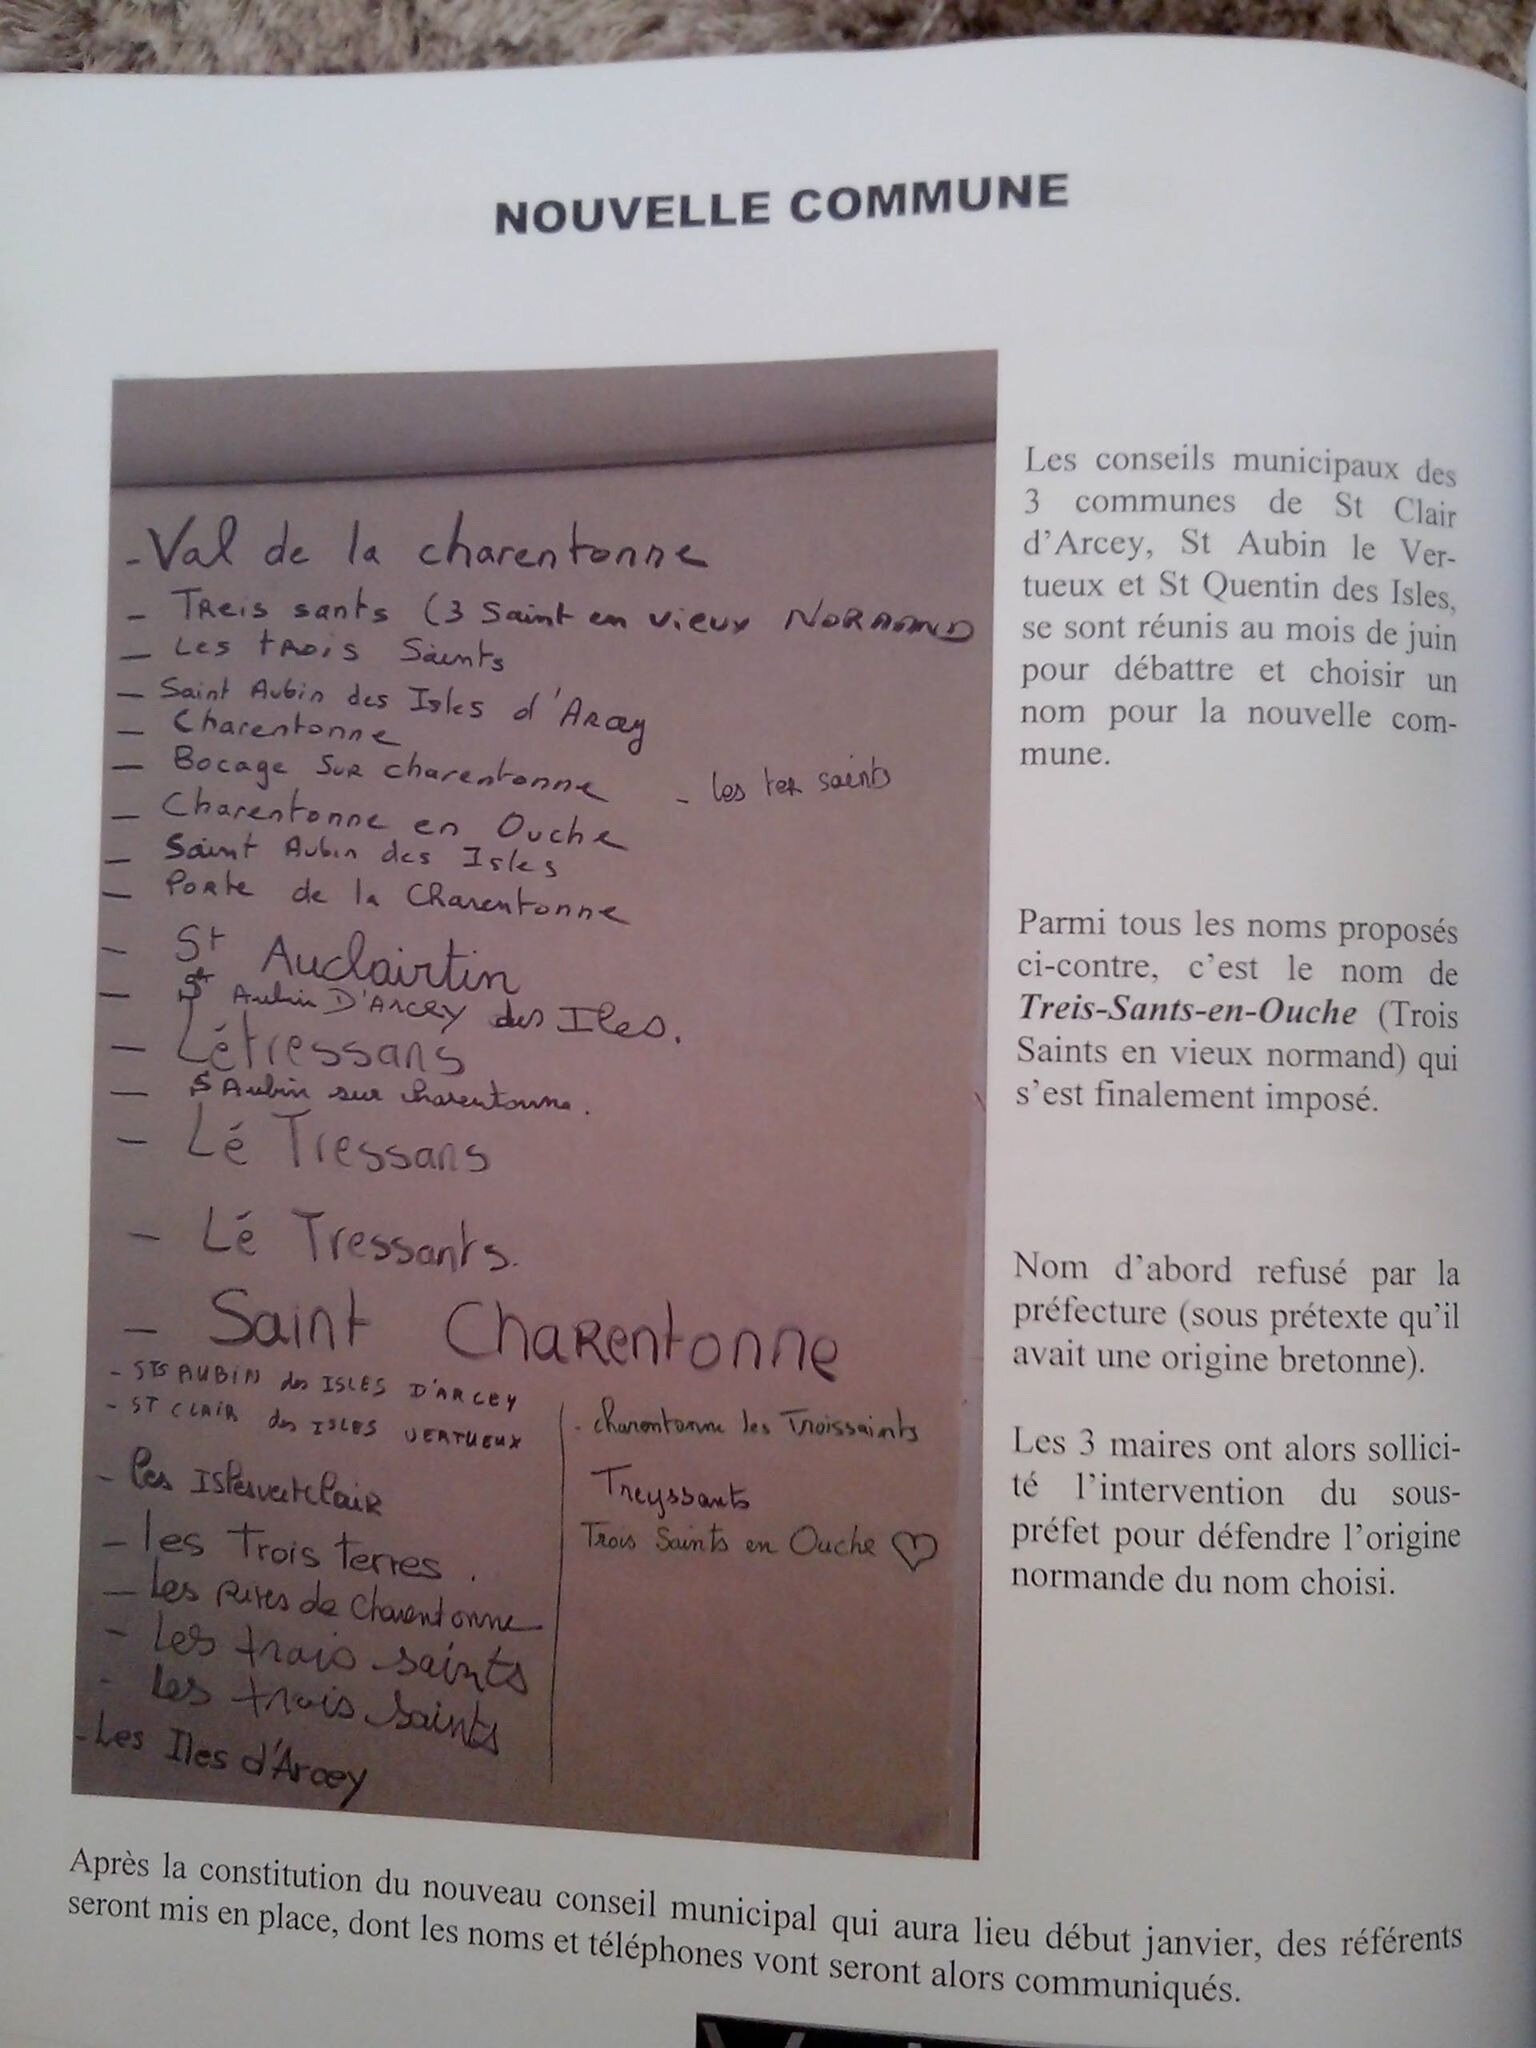 NOUVELLE COMMUNE
- Val de la charentonne
- Treis sants (3 Saint en vieux NORMAND
- Les trois Saints
- Saint Aubin des Isles d'Arcey
- Charentonne
- Bocage sur charentonne
- les ter saints
- Charentonne en Ouche
- Saint Aubin des Isles
- Porte de la Charentonne
- St Auclairtin
- St Aubin D'Arcey des Iles.
- Létressans
- St Aubin sur Charentonne.
- Lé Tressans
- Lé Tressants.
- Saint Charentonne
- STS AUBIN des ISLES D'ARCEY
- ST CLAIR des ISLES VERTUEUX
- les Islesvertclair
- les Trois terres.
- Les rives de Charentonne
- Les trais saints
- Les trois saints
- Les Iles d'Arcey
- Charentonne les Troissaints
Treyssants
Trois Saints en Ouche ♡
Les conseils municipaux des
3 communes de St Clair
d'Arcey, St Aubin le Ver-
tueux et St Quentin des Isles,
se sont réunis au mois de juin
pour débattre et choisir un
nom pour la nouvelle com-
mune.
Parmi tous les noms proposés
ci-contre, c'est le nom de
Treis-Sants-en-Ouche (Trois
Saints en vieux normand) qui
s'est finalement imposé.
Nom d'abord refusé par la
préfecture (sous prétexte qu'il
avait une origine bretonne).
Les 3 maires ont alors sollici-
té l'intervention du sous-
préfet pour défendre l'origine
normande du nom choisi.
Après la constitution du nouveau conseil municipal qui aura lieu début janvier, des référents
seront mis en place, dont les noms et téléphones vont seront alors communiqués.